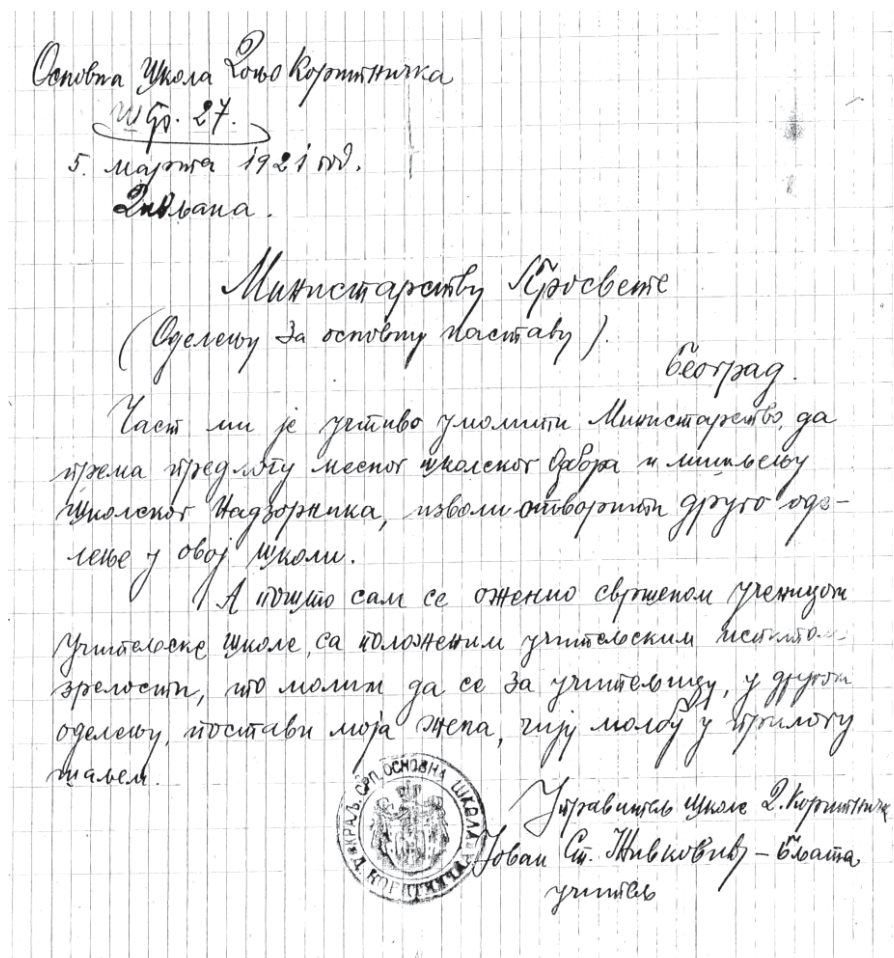 Основна Школа Доњо Коритничка
Ш Бр. 27.
5. марта 1921 год.
Министарству Просвете
(Одељењу за основну наставу).
Београд.
Част ми је учтиво умолити Министарство, да
према предлогу месног школског Одбора и мишљењу
Школског Надзорника, изволи отворити друго оде-
лење у овој школи.
А пошто сам се оженио свршеном ученицом
Учитељске школе, са положеним учитељским испитом
зрелости, то молим да се за учитељицу, у другом
одељењу, постави моја жена, чију молбу у прилогу
шаљем.
КРАЉ. СРП. ОСНОВНА ШКОЛА
Д. КОРИТНИЧКА
Управитељ школе Д. Коритничке
Јован Ст. Живковић – Бљата
учитељ